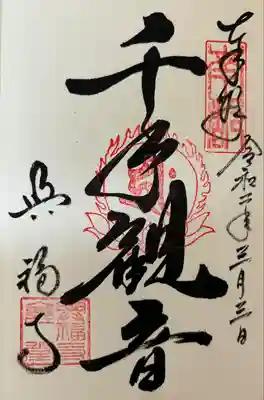 奉拝
令和二年三月三日
千手観音
興福寺